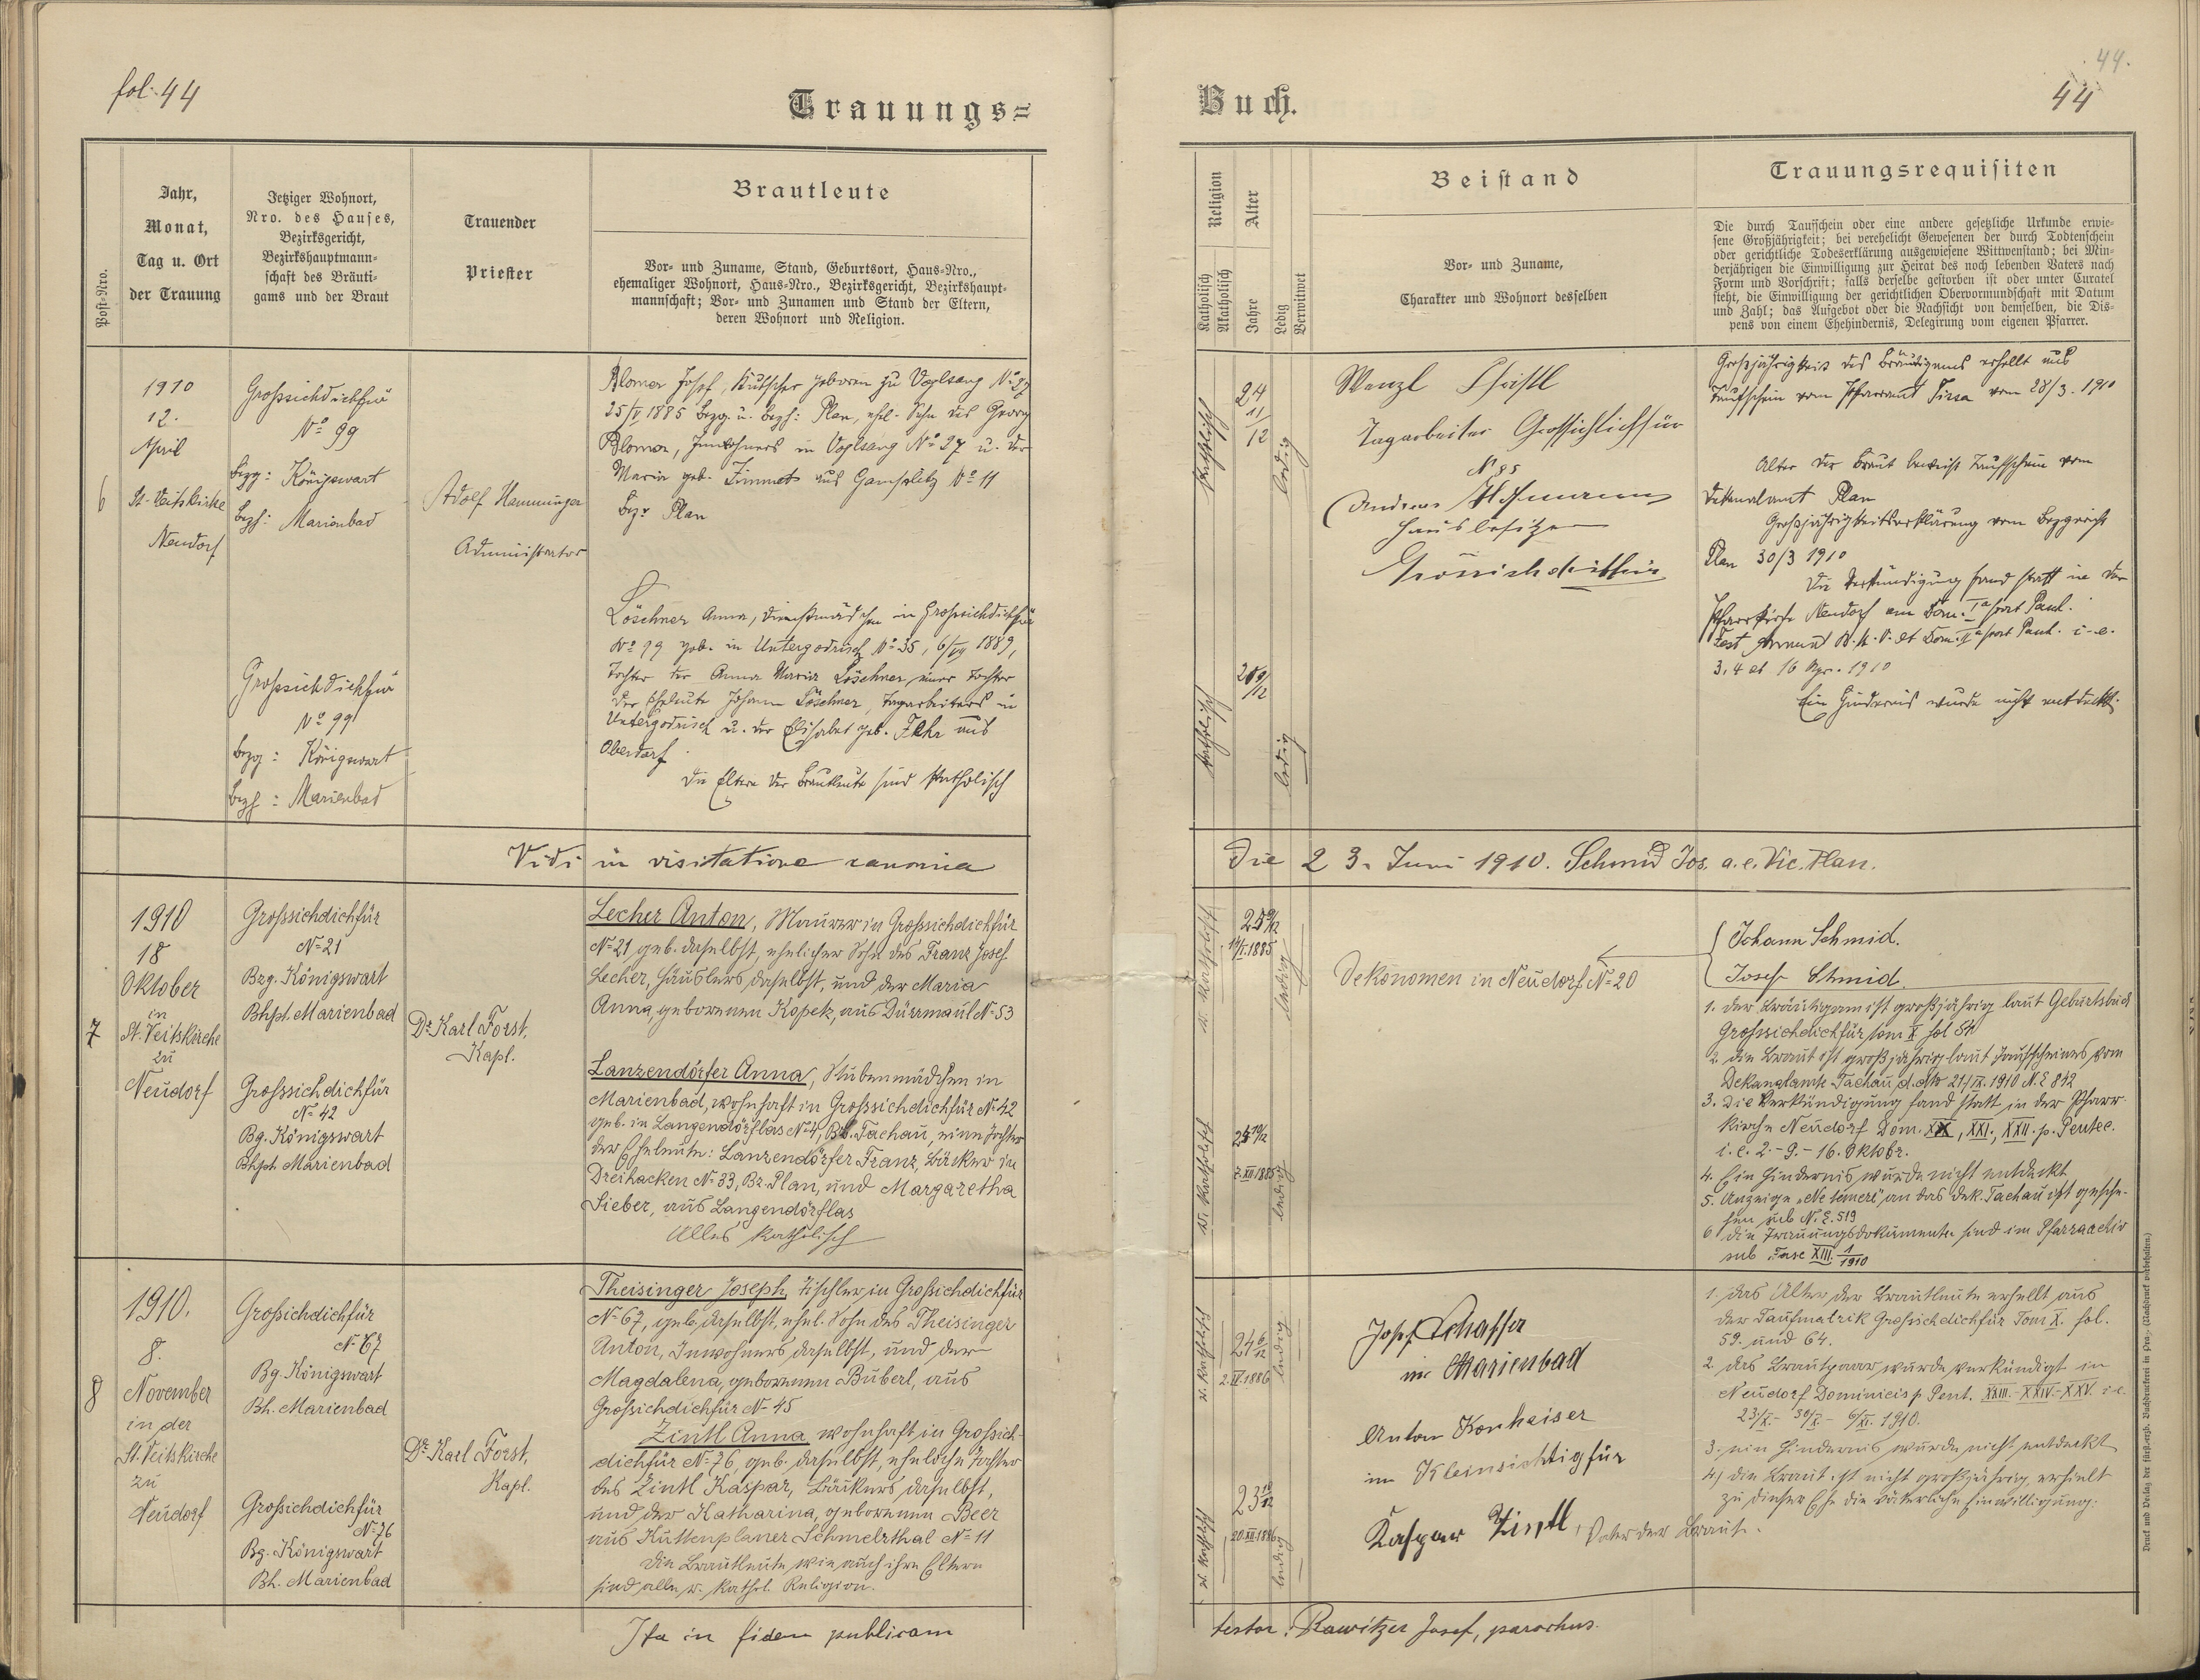 fol. 44
Trauungs=
Post-Nro.
Jahr,
Monat,
Tag u. Ort
der Trauung
Jetziger Wohnort,
Nro. des Hauses,
Bezirksgericht,
Bezirkshauptmann=
schaft des Bräuti=
gams und der Braut
Trauender
Priester
Brautleute
Vor= und Zuname, Stand, Geburtsort, Haus=Nro.,
ehemaliger Wohnort, Haus=Nro., Bezirksgericht, Bezirkshaupt=
mannschaft; Vor= und Zunamen und Stand der Eltern,
deren Wohnort und Religion.
6
1910
12.
April
St. Veitskirche
Neudorf
Grossichdichfür
No 99
bzg: Königswart
bzh: Marienbad
Grossichdichfür
No 99
bzg: Königswart
bzh: Marienbad
Adolf Hamminger
Administrator
Blomer Josef, Kutscher geboren zu Voglsang No 27
25/V 1885 Bezg u. bezh: Plan, ehl. Sohn des Georg
Blomer, Inwohners in Voglsang No 27 u. der
Maria geb. Zimmet aus No 11
Bez. Plan
Löschner Anna, Dienstmädchen in Grossichdichfür
No 99 geb. in Untergodrisch No 35, 1889,
Tochter der Anna Maria Löschner, einer Tochter
der Eheleute Johann Löschner, Tagarbeiters in
Untergodrisch u. der Elisabet geb. aus
Oberdorf.
Die Eltern der Brautleute sind katholisch
Vidi in visitatione canonica
7
1910
18
Oktober
in
St. Veitskirche
zu
Neudorf
Grossichdichfür
No 21
Bzg. Königswart
Bhpt. Marienbad
Grossichdichfür
No 42
Bg. Königswart
Bhpt. Marienbad
Dr. Karl Forst,
Kapl.
Lecher Anton, Maurer in Grossichdichfür
No 21 geb. daselbst, ehelicher Sohn des Franz Josef
Lecher, Häuslers daselbst, und der Maria
Anna, geborenen Kopetz, aus Dürrmaul No 53
Lanzendörfer Anna, Stubenmädchen in
Marienbad, wohnhaft in Grossichdichfür No 42
geb. in Langendörflas No 4, Bz. Tachau, eine Tochter
der Eheleute: Lanzendörfer Franz, Bäcker in
Dreihacken No 33, Bz. Plan, und Margaretha
Sieber, aus Langendörflas
Alles katholisch
8
1910.
8.
November
in der
St. Veitskirche
zu
Neudorf
Grossichdichfür
No 67
Bg. Königswart
Bh. Marienbad
Grossichdichfür
No 76
Bg. Königswart
Bh. Marienbad
Dr. Karl Forst,
Kapl.
Theisinger Joseph, Tischler in Grossichdichfür
No 67, geb. daselbst, ehel. Sohn des Theisinger
Anton, Inwohners daselbst, und der
Magdalena, geborenen Buberl, aus
Grossichdichfür No 45
Zintl Anna, wohnhaft in Grossich-
dichfür No 76, geb. daselbst, eheliche Tochter
des Zintl Kaspar, Bäckers daselbst,
und der Katharina, geborenen Beer
aus Kuttenplaner Schmelzthal No 11
Die Brautleute wie auch ihre Eltern
sind alle r. kathol. Religion.
Ita in fidem publicam
Buch.
44.
44
Religion
Katholisch
Akatholisch
Alter
Jahre
Ledig
Verwitwet
Beistand
Vor= und Zuname,
Charakter und Wohnort desselben
Trauungsrequisiten
Die durch Taufschein oder eine andere gesetzliche Urkunde erwie=
sene Großjährigkeit; bei verehelicht Gewesenen der durch Todtenschein
oder gerichtliche Todeserklärung ausgewiesene Wittwenstand; bei Min=
derjährigen die Einwilligung zur Heirat des noch lebenden Vaters nach
Form und Vorschrift; falls derselbe gestorben ist oder unter Curatel
steht, die Einwilligung der gerichtlichen Obervormundschaft mit Datum
und Zahl; das Aufgebot oder die Nachsicht von demselben, die Dis=
pens von einem Ehehindernis, Delegirung vom eigenen Pfarrer.
katholisch
24
11/12
ledig
katholisch
ledig
Wenzl
Tagarbeiter Grossichdichfür
N 85
Andreas Hofmann
Hausbesitzer
Grossichdichfür
Großjährigkeit des Bräutigams erhellt aus
Taufschein vom Pfarramt Tissa vom 28/3. 1910
Alter der Braut beweist Taufschein vom
Dekanalamt Plan
Großjährigkeitserklärung vom Bezgericht
Plan 30/3 1910
Die Verkündigung fand statt in der
Pfarrkirche Neudorf am Dom. Ia post Pasch.
Fest Annunt. B.M.V. et Dom. IIa post Pasch. i.e.
3, 4 et 10 Apr. 1910
Ein Hindernis wurde nicht entdeckt.
Die 23. Juni 1910. Schmid Jos. a.e. Vic. Plan.
r. katholisch
25 9/12
14/I.1885
ledig
r. katholisch
7.XII 1885
ledig
Oekonomen in Neudorf No 20
Johann Schmid.
Josef Schmid.
1. Der Bräutigam ist großjährig laut Geburtsbuch
Grossichdichfür tom X fol 54
2. die Braut ist großjährig laut Taufscheines vom
Dekanalamte Tachau d. dto 21/IX. 1910 N.E 842
3. Die Verkündigung fand statt in der Pfarr-
kirche Neudorf Dom. XX, XXI., XXII. p. Pentec.
i.e. 2.-9.-16. Oktobr.
4. Ein Hindernis wurde nicht entdeckt
5. Anzeige „Ne temere" an das Dek. Tachau ist gesche-
hen sub N.E. 519
6 die Trauungsdokumente sind im Pfarrarchiv
sub Fasc XIII. 1/1910
r. katholisch
24 6/12
2.IV.1886
ledig
r. katholisch
23 10/12
20.XII 1886
ledig
Josef Schaffer
in Marienbad
Anton Konheiser
in Kleinsichtigfür
Kaspar Zintl, Vater der Braut.
1. das Alter der Brautleute erhellt aus
der Taufmatrik Grossichdichfür Tom X. fol.
59. und 64.
2. das Brautpaar wurde verkündigt in
Neudorf Dominicis p. Pent. XXIII.-XXIV.-XXV. i.e.
23/X.- 30/X.- 6/XI. 1910.
3. ein Hindernis wurde nicht entdeckt
4) die Braut ist nicht großjährig, erhielt
zu dieser Ehe die väterliche Einwilligung:
testor: Rawitzer Josef, parochus.
Druck und Verlag der fürst.-erzb. Buchdruckerei in Prag. (Nachdruck vorbehalten.)